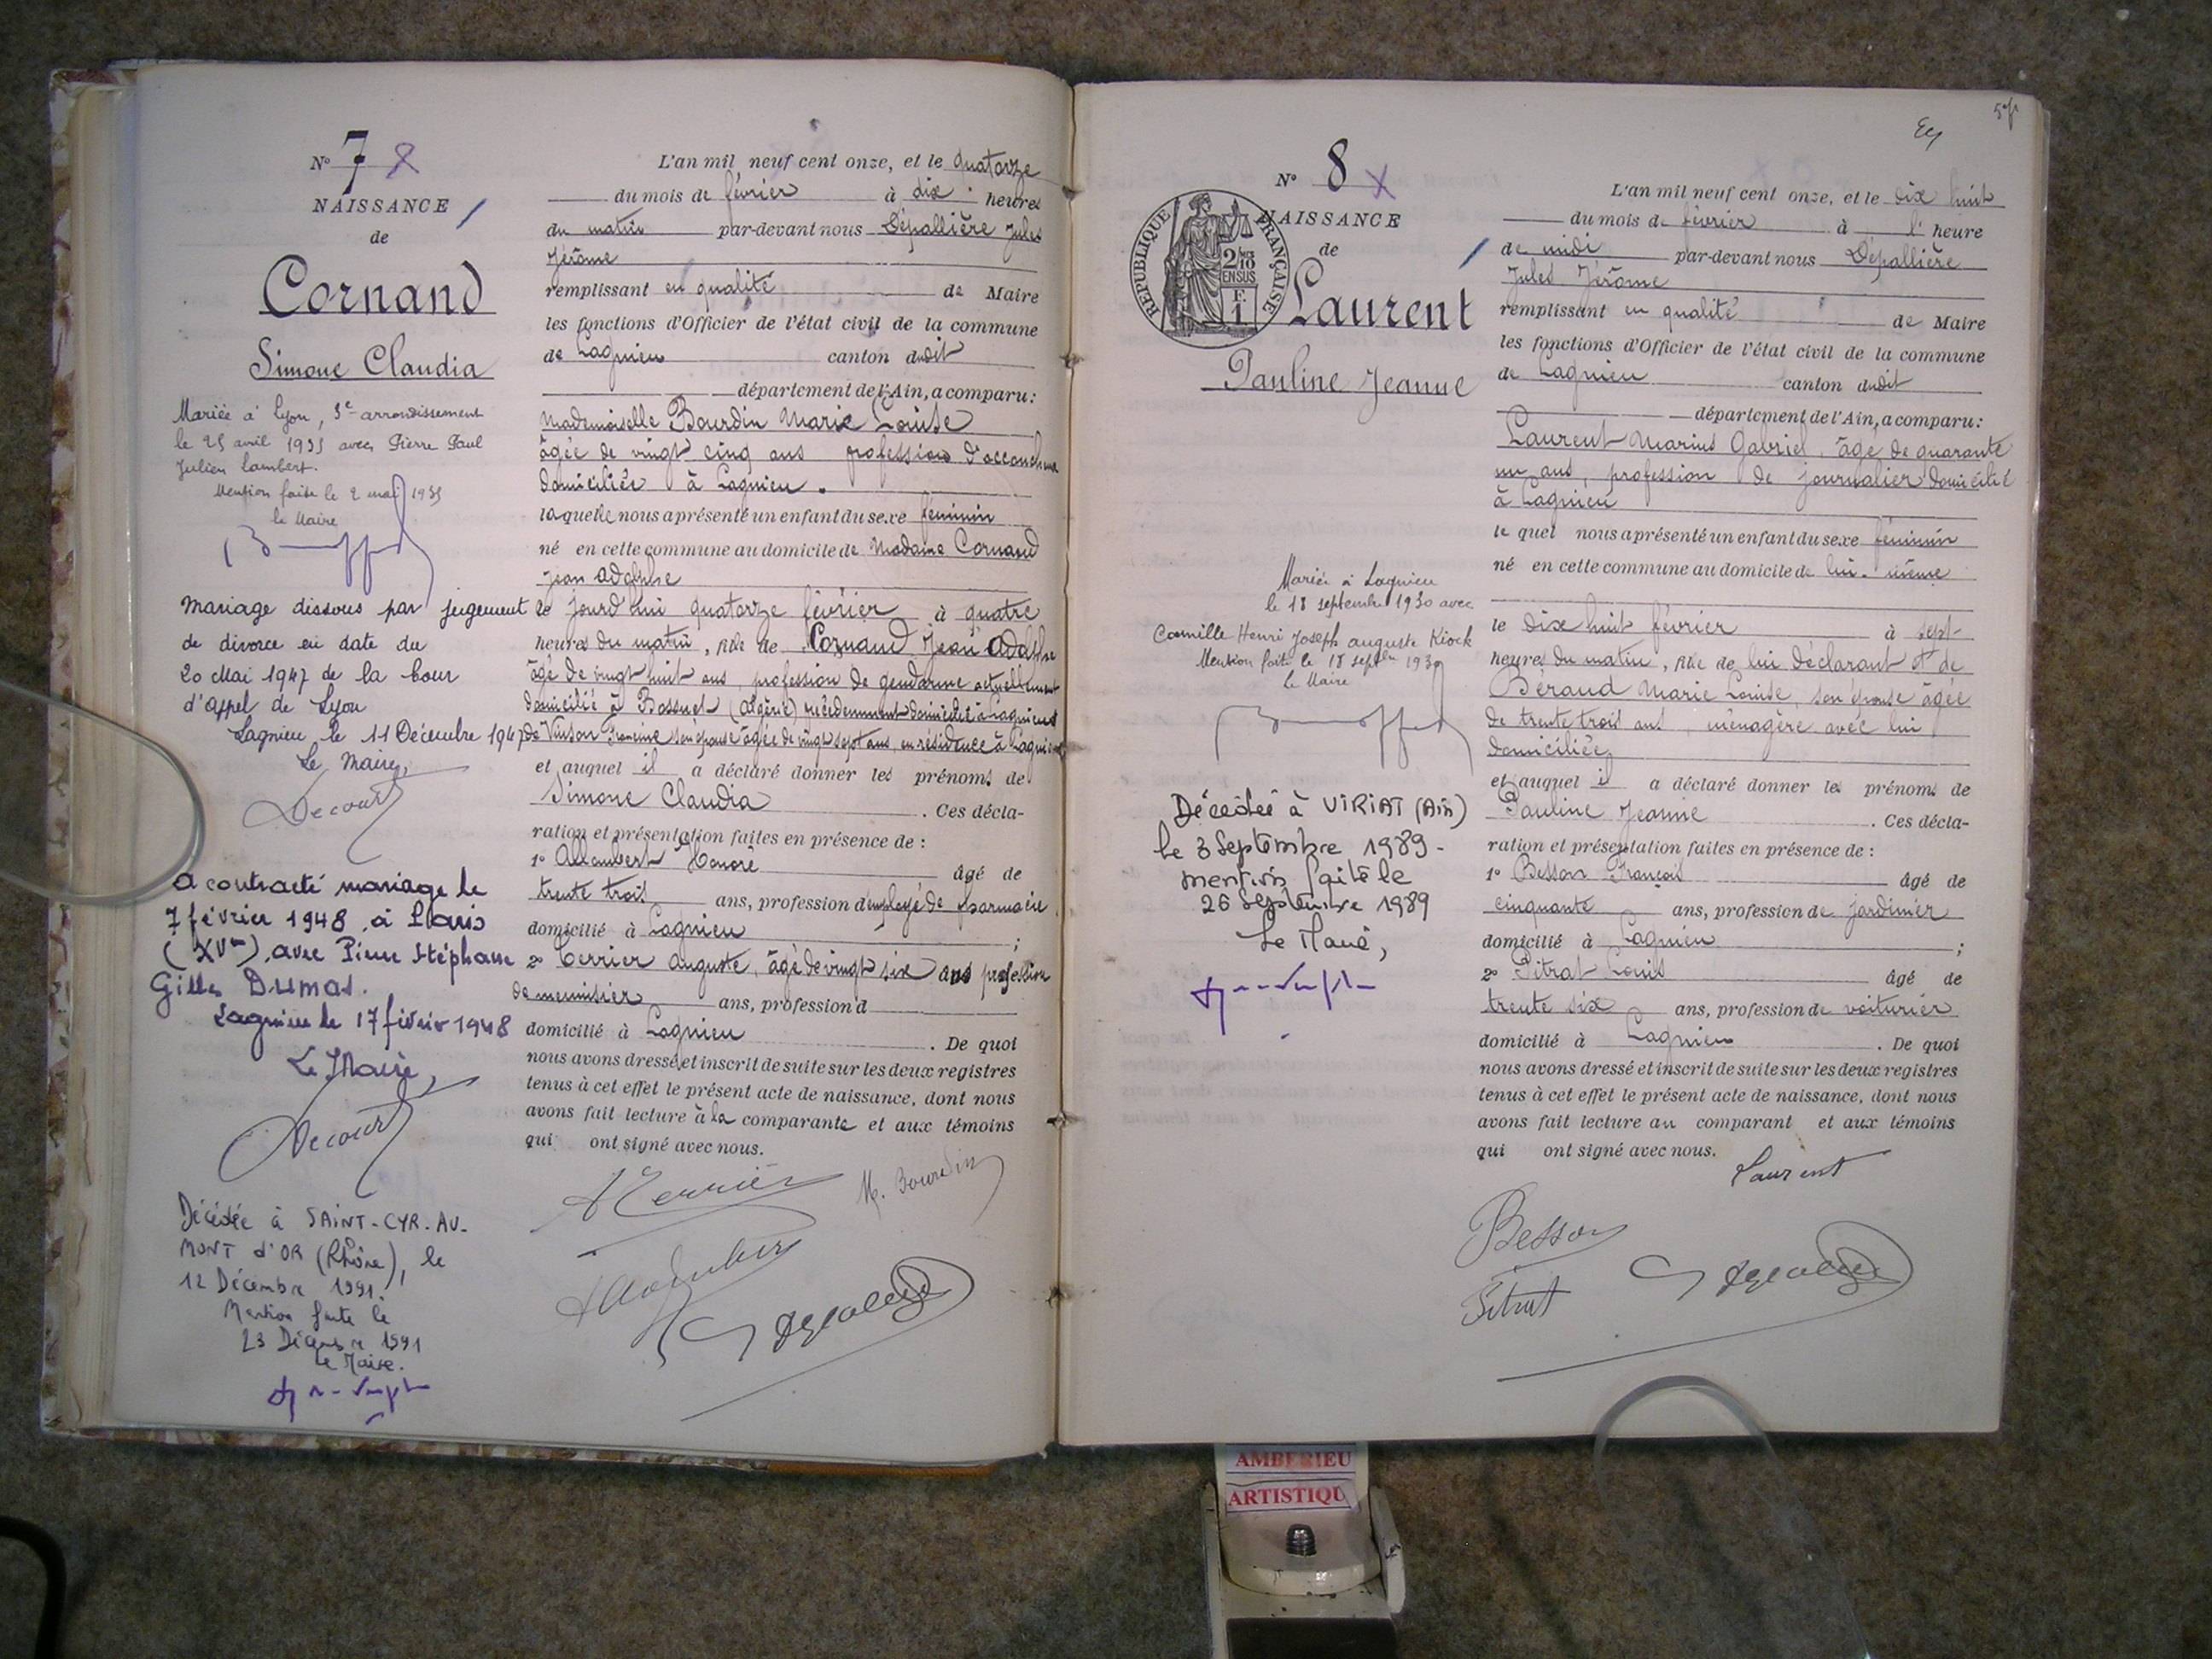 N° 7
NAISSANCE
de
Cornand
Simone Claudia
Mariée à Lyon, 3e arrondissement
le 25 avril 1935 avec Pierre Paul
Julien Lambert.
Mention faite le 2 mai 1935
le Maire
mariage dissous par jugement
de divorce en date du
20 Mai 1947 de la Cour
d'Appel de Lyon
Lagnieu, le 11 Décembre 1947
Le Maire,
Decourt
a contracté mariage le
7 février 1948, à Paris
(XVme), avec Pierre Stéphane
Gilles Dumas.
Lagnieu le 17 février 1948
Le Maire,
Decourt
Décédée à SAINT-CYR-AU-
MONT d'OR (Rhône), le
12 Décembre 1991.
Mention faite le
23 Décembre 1991
Le Maire.
L'an mil neuf cent onze, et le quatorze
du mois de février à dix heures
du matin par-devant nous Dépallière Jules
Jérôme
remplissant en qualité de Maire
les fonctions d'Officier de l'état civil de la commune
de Lagnieu canton dudit
département de l'Ain, a comparu:
Mademoiselle Bourdin Marie Louise
âgée de vingt cinq ans profession d'accoucheuse
domiciliée à Lagnieu.
laquelle nous a présenté un enfant du sexe féminin
né en cette commune au domicile de Madame Cornand
Jean Adolphe
le jourd'hui quatorze février à quatre
heures du matin, fille de Cornand Jean Adolphe
âgé de vingt huit ans, profession de gendarme actuellement
domicilié à Bossuet (Algérie) précédemment domicilié à Lagnieu et
de Vinson Francine son épouse âgée de vingt sept ans en résidence à Lagnieu
et auquel il a déclaré donner les prénoms de
Simone Claudia. Ces décla-
ration et présentation faites en présence de :
1° Allombert Honoré âgé de
trente trois ans, profession d'employé de pharmacie
domicilié à Lagnieu ;
2° Terrier Auguste, âgé de vingt six ans profession
de menuisier ans, profession d
domicilié à Lagnieu. De quoi
nous avons dressé et inscrit de suite sur les deux registres
tenus à cet effet le présent acte de naissance, dont nous
avons fait lecture à la comparante et aux témoins
qui ont signé avec nous.
A Terrier M. Bourdin
Allombert
N° 8
NAISSANCE
de
REPUBLIQUE FRANÇAISE
2/10 EN SUS
F. 1
Laurent
Pauline Jeanne
Mariée à Lagnieu
le 18 septembre 1930 avec
Camille Henri Joseph Auguste Kiock
Mention faite le 18 septbre 1930
le Maire
Décédée à VIRIAT (Ain)
le 3 Septembre 1989-
mention faite le
26 Septembre 1989
Le Maire,
L'an mil neuf cent onze, et le dix huit
du mois de février à l' heure
de midi par-devant nous Dépallière
Jules Jérôme
remplissant en qualité de Maire
les fonctions d'Officier de l'état civil de la commune
de Lagnieu canton dudit
département de l'Ain, a comparu:
Laurent Marius Gabriel, âgé de quarante
un ans, profession de journalier domicilié
à Lagnieu
lequel nous a présenté un enfant du sexe féminin
né en cette commune au domicile de lui-même
le dix huit février à sept
heures du matin, fille de lui déclarant et de
Béraud Marie Louise, son épouse âgée
de trente trois ans ménagère avec lui
domiciliée
et auquel il a déclaré donner les prénoms de
Pauline Jeanne. Ces décla-
ration et présentation faites en présence de :
1° Besson François âgé de
cinquante ans, profession de jardinier
domicilié à Lagnieu ;
2° Pitrat Louis âgé de
trente six ans, profession de voiturier
domicilié à Lagnieu. De quoi
nous avons dressé et inscrit de suite sur les deux registres
tenus à cet effet le présent acte de naissance, dont nous
avons fait lecture au comparant et aux témoins
qui ont signé avec nous.
Laurent
Besson
Pitrat
AMBERIEU
ARTISTIQU